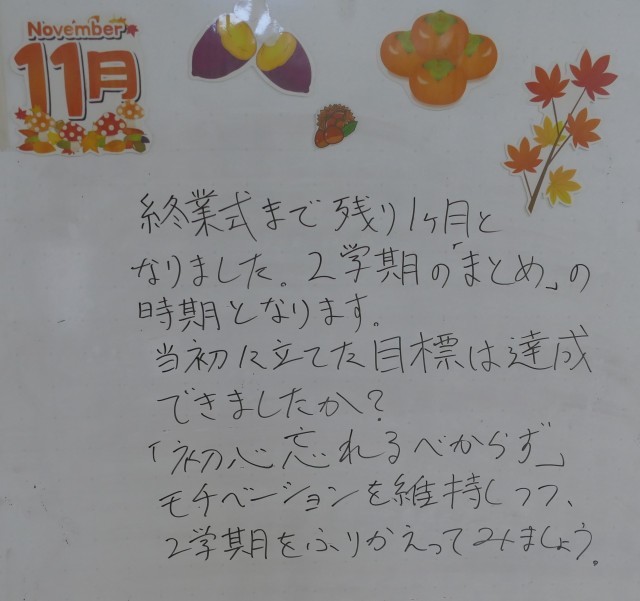 November
11月
終業式まで残り1ヶ月と
なりました。2学期の「まとめ」の
時期となります。
当初に立てた目標は達成
できましたか？
「初心忘れるべからず」
モチベーションを維持しつつ、
2学期をふりかえってみましょう。